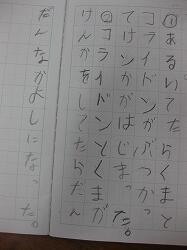 ①あるいてたらくまと
コライドンがぶつかっ
てけンかがはじまっ
た。
②コライドンとくまが
けんかをしてたらだん
だんなかよしになっ
た。